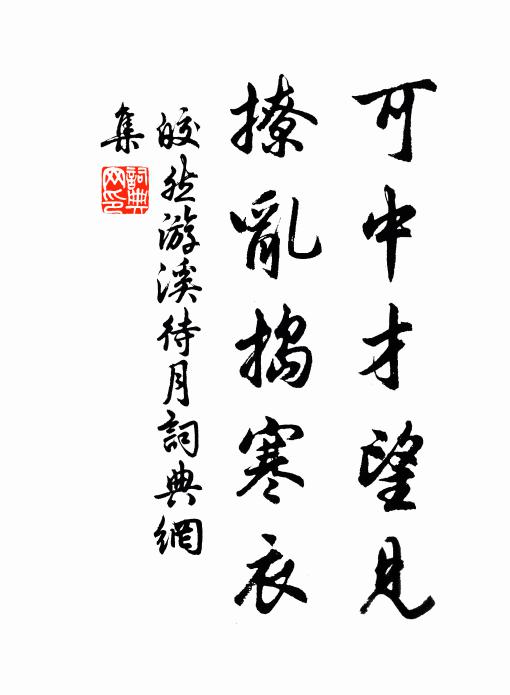 可中才望見
撩亂搗寒衣
皎然游溪待月詞典網
集
詞典
网印